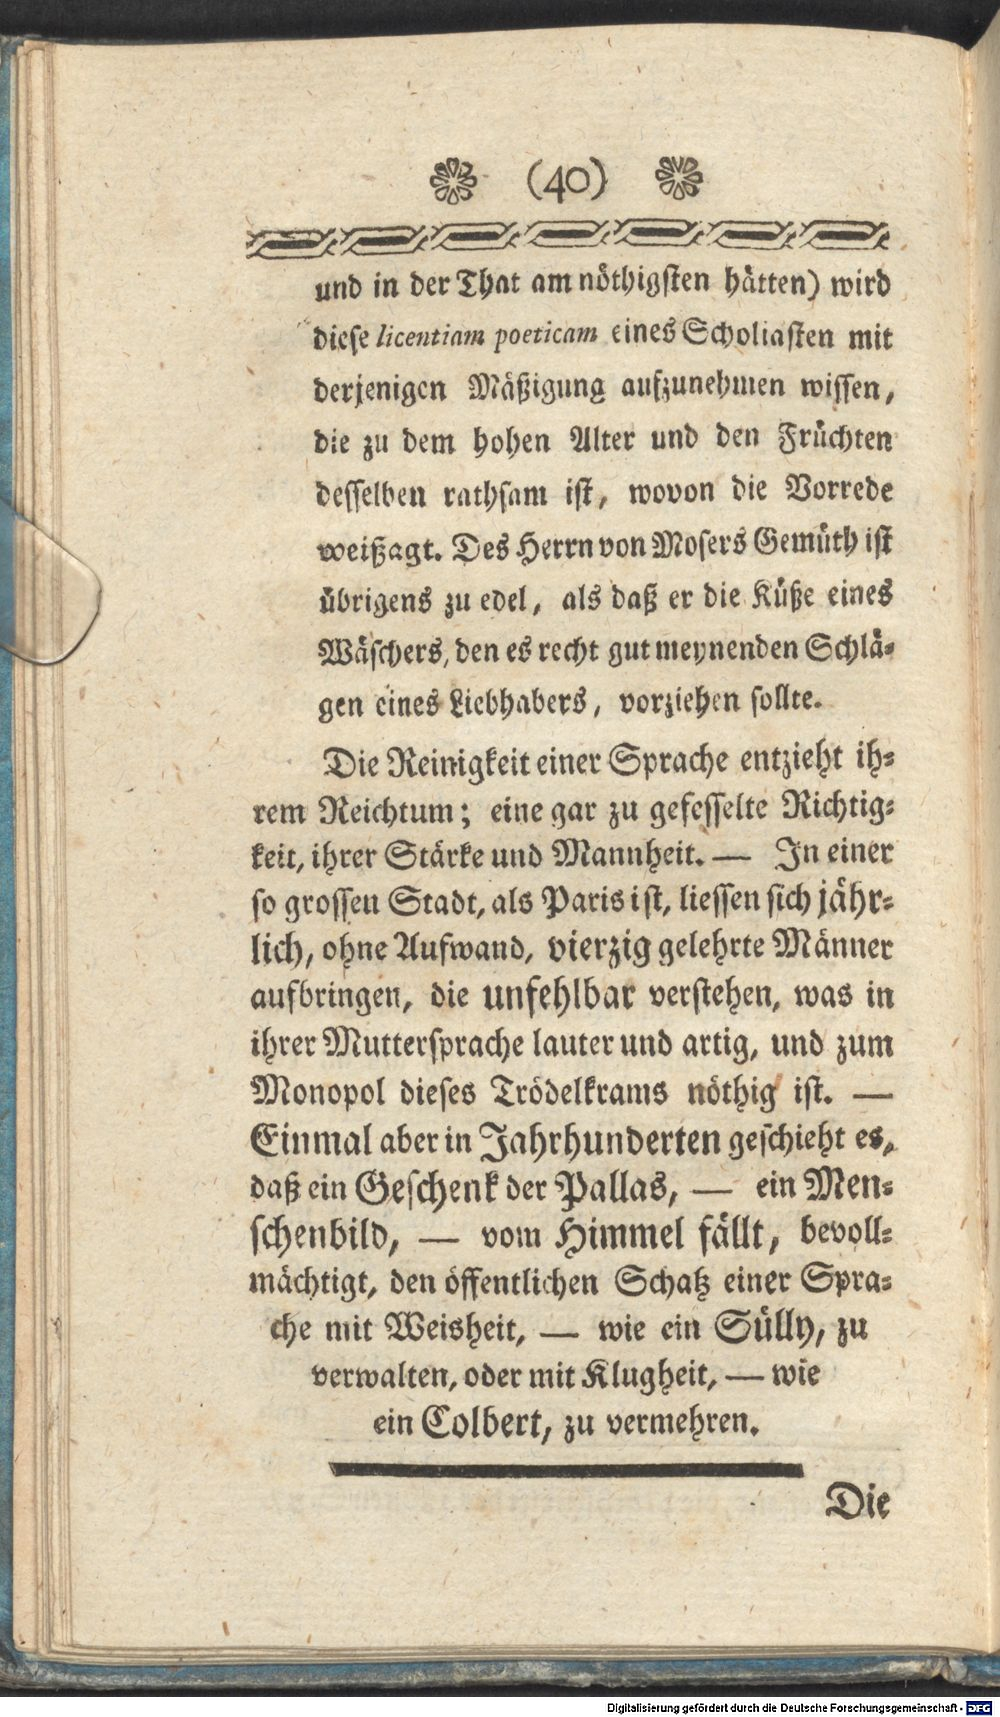 (40)
und in der That am nöthigsten hätten) wird
diese licentiam poeticam eines Scholiasten mit
derjenigen Mäßigung aufzunehmen wissen,
die zu dem hohen Alter und den Früchten
desselben rathsam ist, wovon die Vorrede
weißagt. Des Herrn von Mosers Gemüth ist
übrigens zu edel, als daß er die Küße eines
Wäschers, den es recht gut meynenden Schlä-
gen eines Liebhabers, vorziehen sollte.
Die Reinigkeit einer Sprache entzieht ih-
rem Reichtum; eine gar zu gefesselte Richtig-
keit, ihrer Stärke und Mannheit. — In einer
so grossen Stadt, als Paris ist, liessen sich jähr-
lich, ohne Aufwand, vierzig gelehrte Männer
aufbringen, die unfehlbar verstehen, was in
ihrer Muttersprache lauter und artig, und zum
Monopol dieses Trödelkrams nöthig ist. —
Einmal aber in Jahrhunderten geschieht es,
daß ein Geschenk der Pallas, — ein Men-
schenbild, — vom Himmel fällt, bevoll-
mächtigt, den öffentlichen Schatz einer Spra-
che mit Weisheit, — wie ein Sülly, zu
verwalten, oder mit Klugheit, — wie
ein Colbert, zu vermehren.
Die
Digitalisierung gefördert durch die Deutsche Forschungsgemeinschaft - DFG